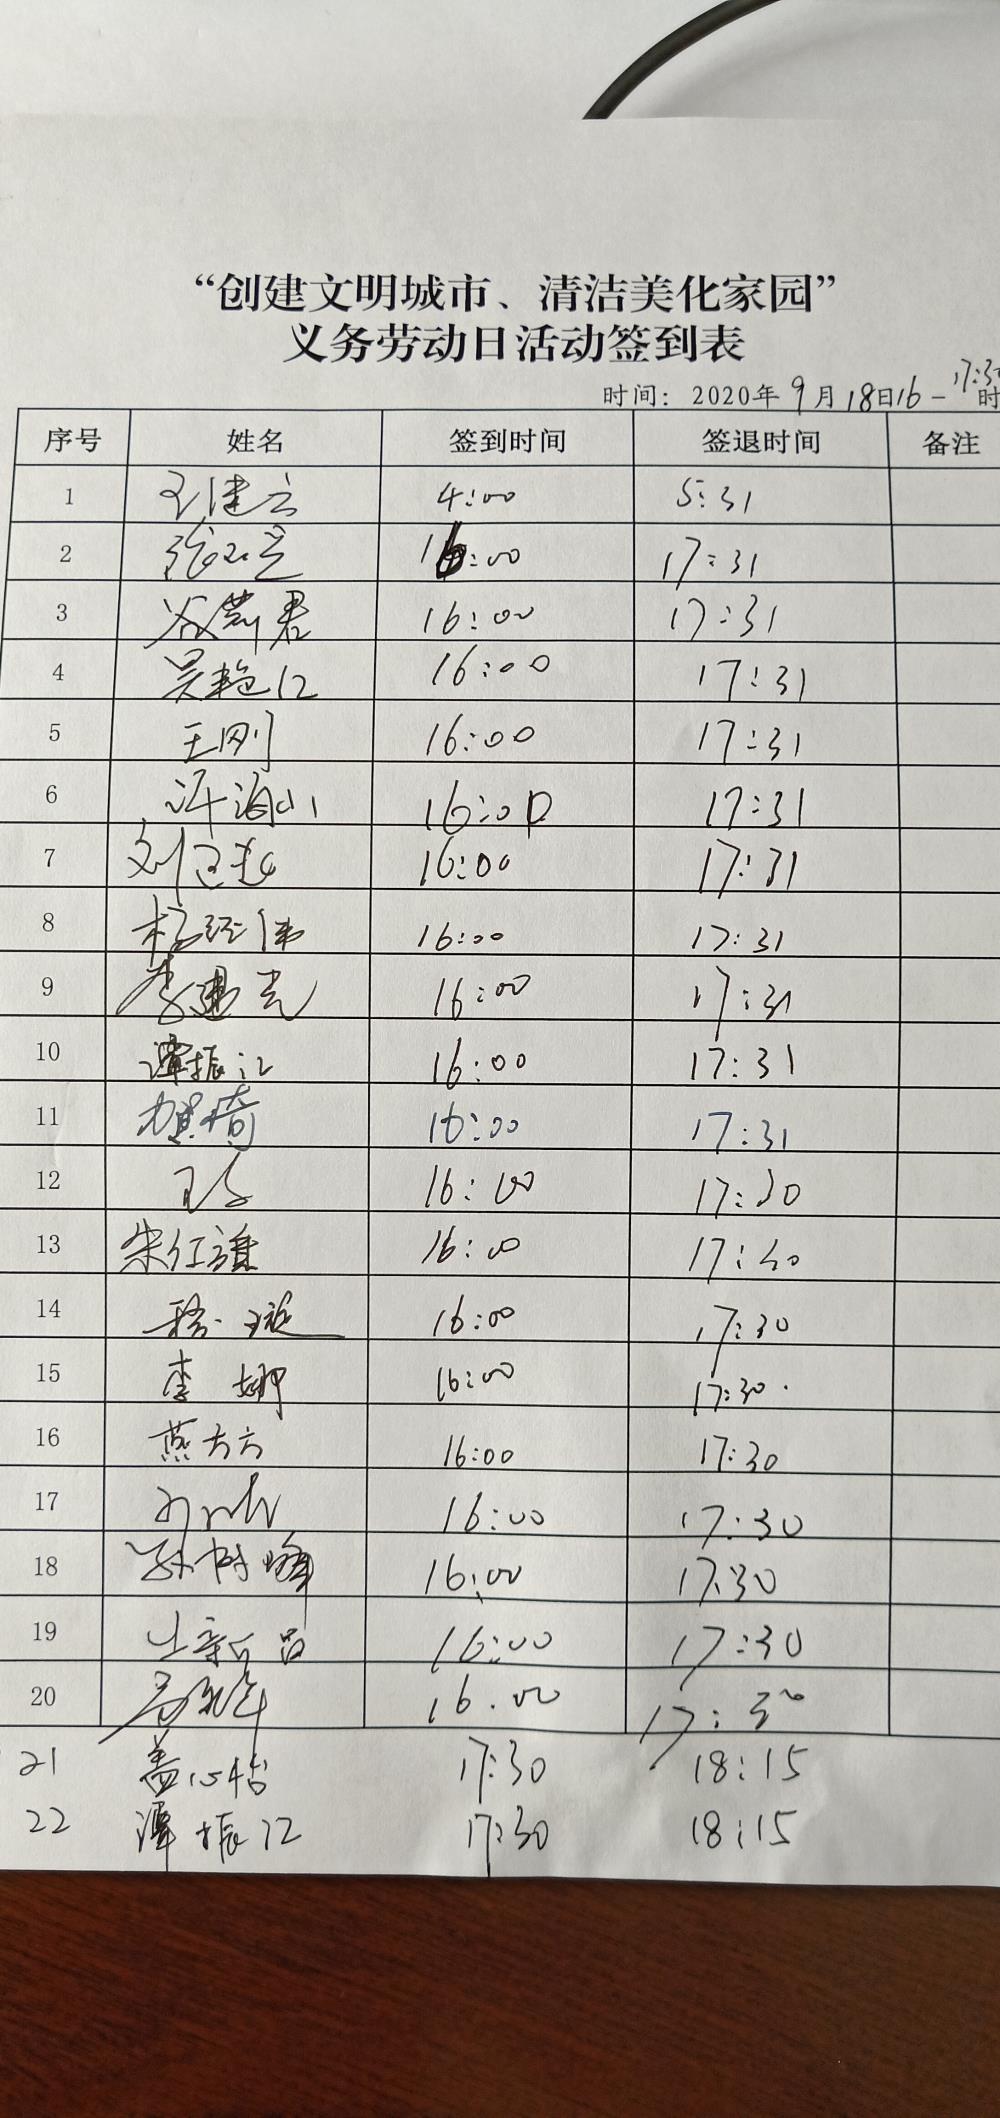 “创建文明城市、清洁美化家园”
义务劳动日活动签到表
时间：2020年9月18日16-17:30时
序号 姓名 签到时间 签退时间 备注
1 王建云 4:00 5:31
2 16:00 17:31
3 16:00 17:31
4 吴艳江 16:00 17:31
5 王刚 16:00 17:31
6 16:00 17:31
7 16:00 17:31
8 16:00 17:31
9 李建克 16:00 17:31
10 谭振江 16:00 17:31
11 贺琦 16:00 17:31
12 16:00 17:30
13 朱红旗 16:00 17:30
14 16:00 17:30
15 李娜 16:00 17:30
16 燕方方 16:00 17:30
17 16:00 17:30
18 孙树峰 16:00 17:30
19 16:00 17:30
20 16:00 17:30
21 盖心怡 17:30 18:15
22 谭振江 17:30 18:15